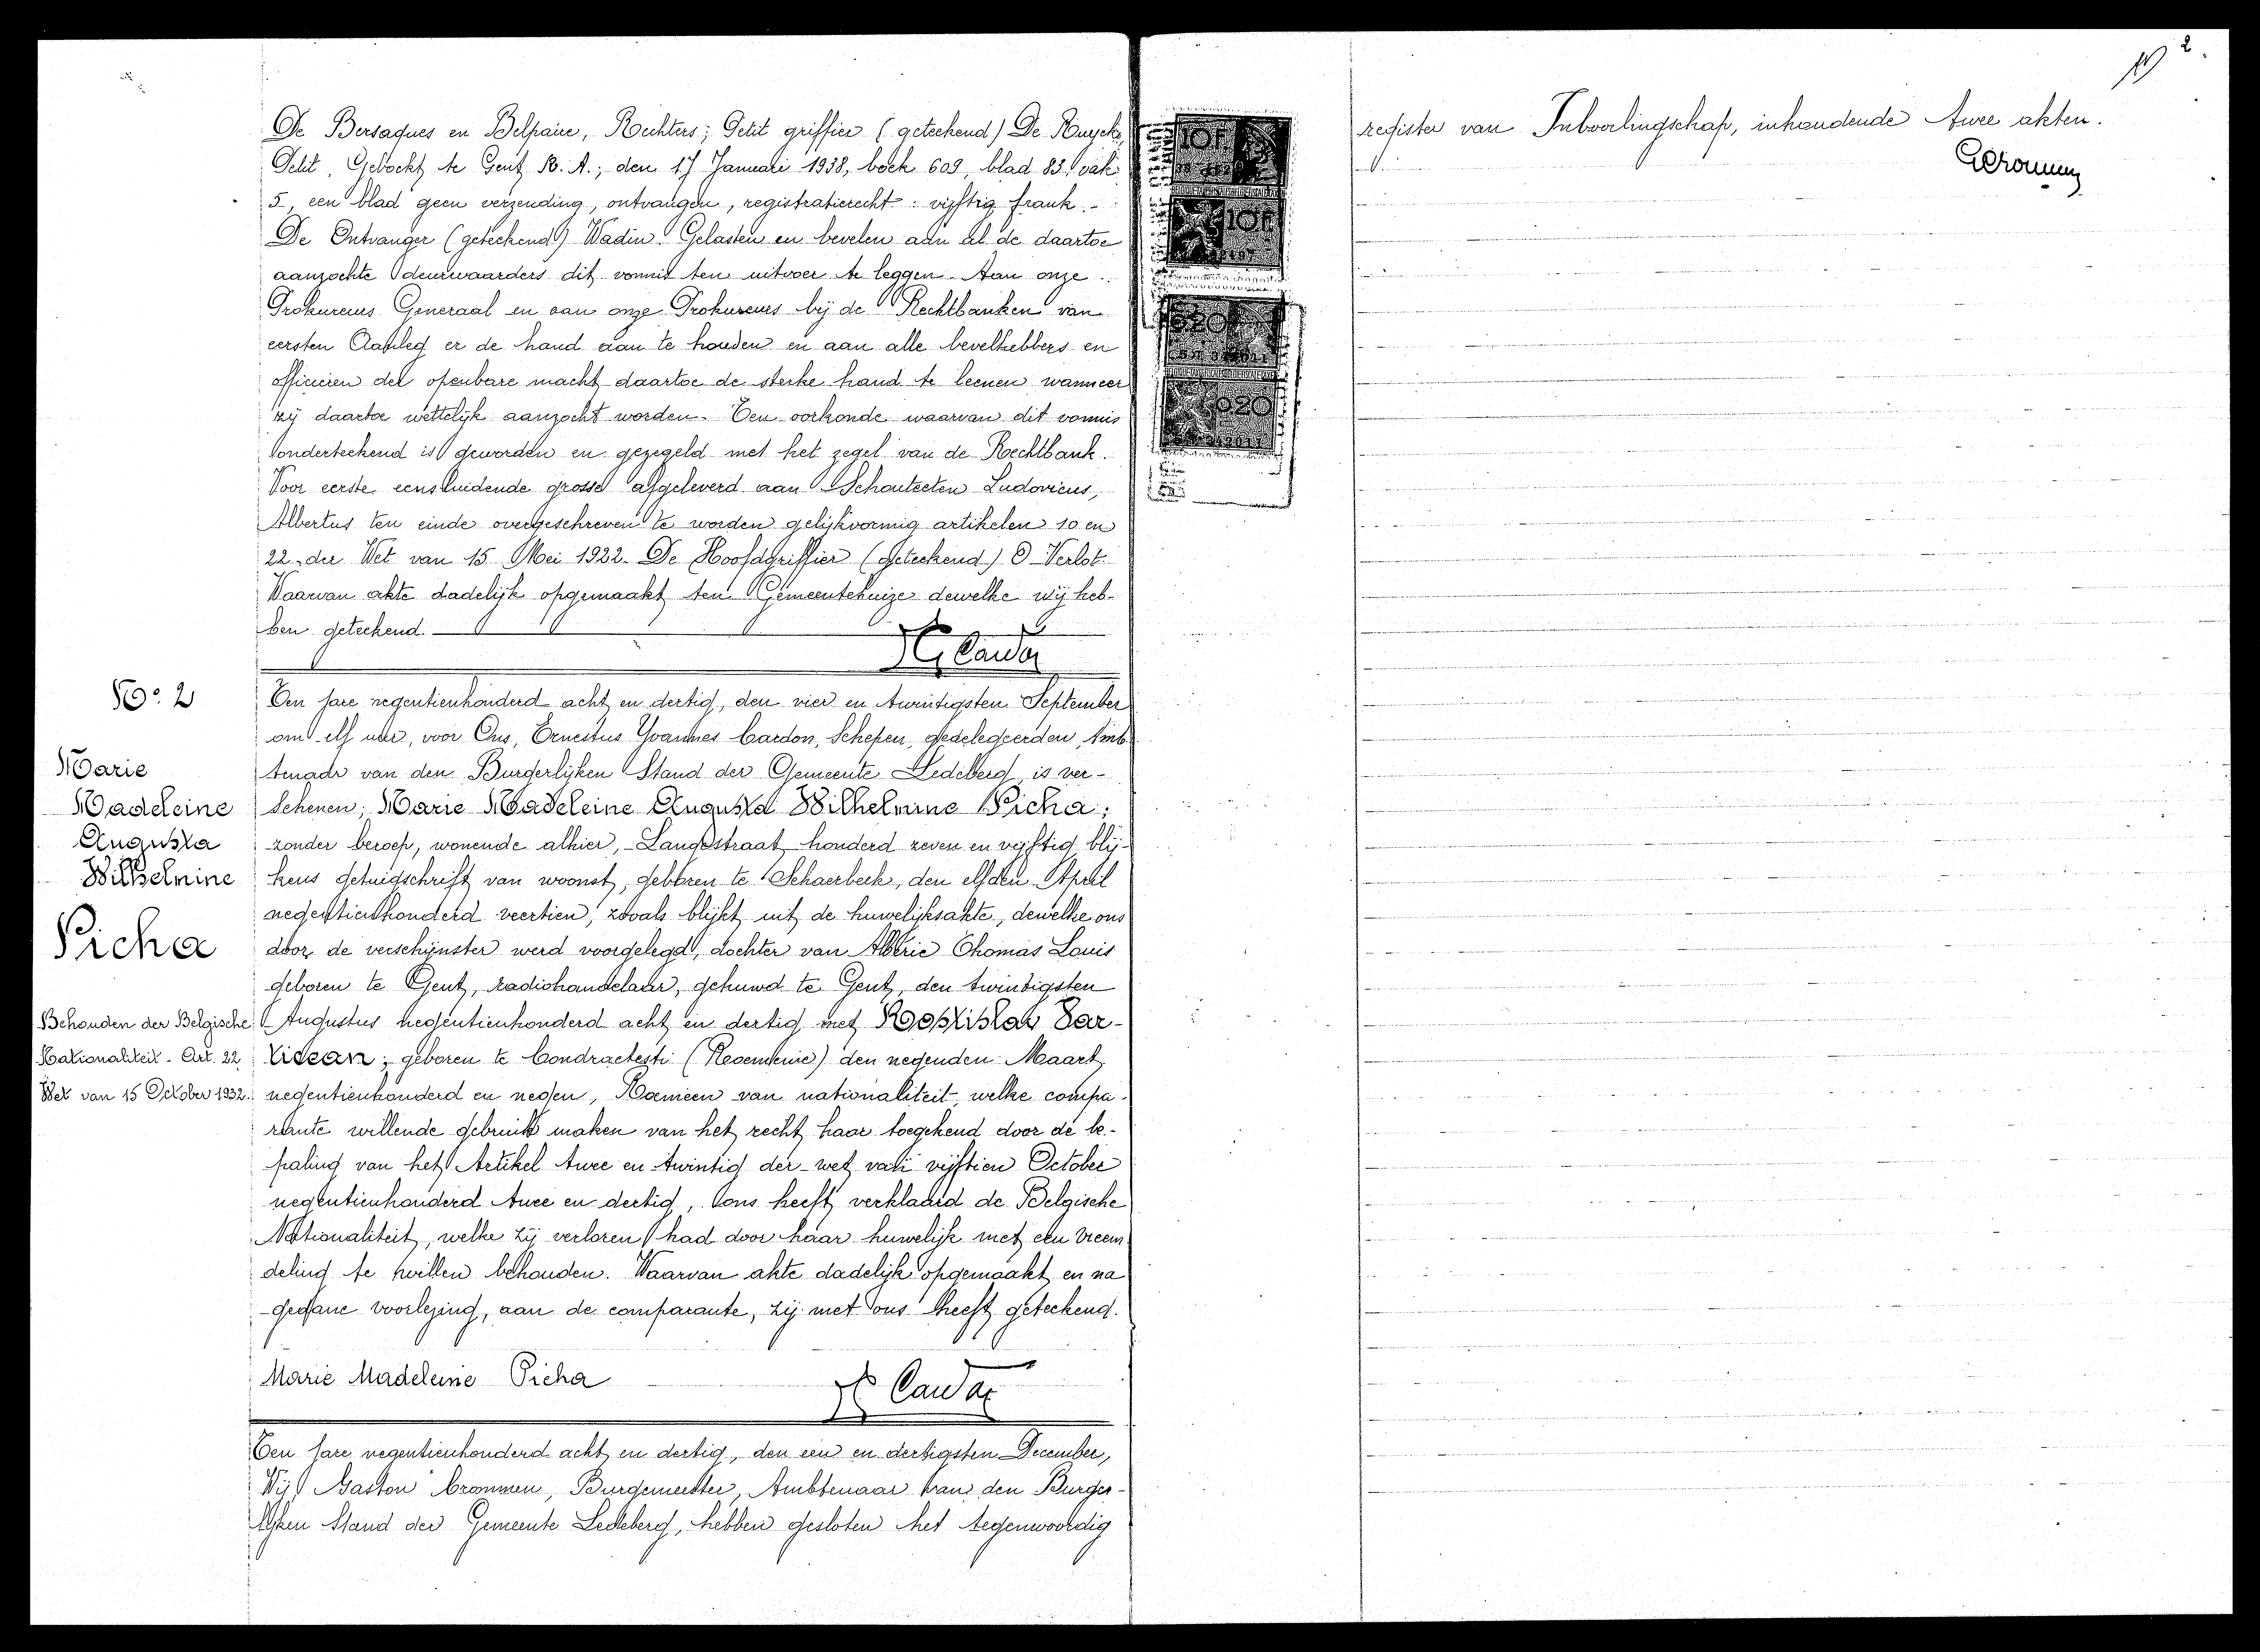 De Bersaques en Belpaire, Rechters; Petit griffier (geteekend) De Ruycke,
Petit, Geboekt te Gent B. A.; den 17 Januari 1938, boek 609, blad 83 vak
5, een blad geen verzending, ontvangen, registratierecht: vijftig frank.-
De Ontvanger (geteekend) Wadin. Gelasten en bevelen aan al de daartoe
aanzochte deurwaarders dit vonnis ten uitvoer te leggen. Aan onze
Prokureurs Generaal en aan onze Prokureurs bij de Rechtbanken van
eersten Aanleg er de hand aan te houden en aan alle bevelhebbers en
officieren der openbare macht daartoe de sterke hand te leenen wanneer
zij daartoe wettelijk aanzocht worden. Ten oorkonde waarvan dit vonnis
onderteekend is geworden en gezegeld met het zegel van de Rechtbank.
Voor eerste eensluidende grosse afgeleverd aan Schouteeten Ludovicus,
Albertus ten einde overgeschreven te worden gelijkvormig artikelen 10 en
22 der Wet van 15 Mei 1922. De Hoofdgriffier (geteekend) O Verlot.
Waarvan akte dadelijk opgemaakt ten Gemeentehuize dewelke wij heb-
ben geteekend.
No. 2
Marie
Madeleine
Augusta
Wilhelmine
Picha
Behouden der Belgische
Nationaliteit. Art. 22
Wet van 15 October 1932.
Ten jare negentienhonderd acht en dertig, den vier en twintigsten September
om elf ure, voor Ons, Ernestus Yoannes Cardon, Schepen, gedelegeerden Amb-
tenaar van den Burgerlijken Stand der Gemeente Ledeberg, is ver-
schenen; Marie Madeleine Augusta Wilhelmine Picha;
zonder beroep, wonende alhier, Langestraat honderd zeven en vijftig blij-
kens getuigschrift van woonst, geboren te Schaerbeek, den elfden April
negentienhonderd veertien, zooals blijkt uit de huwelijksakte, dewelke ons
door de verschijnster werd voorgelegd, dochter van Alberic Thomas Louis
geboren te Gent, radiohandelaar, gehuwd te Gent, den twintigsten
Augustus negentienhonderd acht en dertig met Rostislav Par-
tizan; geboren te Condractesti (Roemenie) den negenden Maart
negentienhonderd en negen, Roemeen van nationaliteit, welke compa-
rante willende gebruik maken van het recht haar toegekend door de be-
paling van het Artikel twee en twintig der wet van vijftien October
negentienhonderd twee en dertig, ons heeft verklaard de Belgische
Nationaliteit, welke zij verloren had door haar huwelijk met een vreem
deling te willen behouden. Waarvan akte dadelijk opgemaakt en na
gedane voorlezing, aan de comparante, zij met ons heeft geteekend.
Marie Madeleine Picha
Ten jare negentienhonderd acht en dertig, den een en dertigsten December,
Wij Gaston Crommen, Burgemeester, Ambtenaar van den Burger-
lijken Stand der Gemeente Ledeberg, hebben gesloten het tegenwoordig
10 F
10 F
20
20
2.
register van Inboorlingschap, inhoudende twee akten.
GCrommen